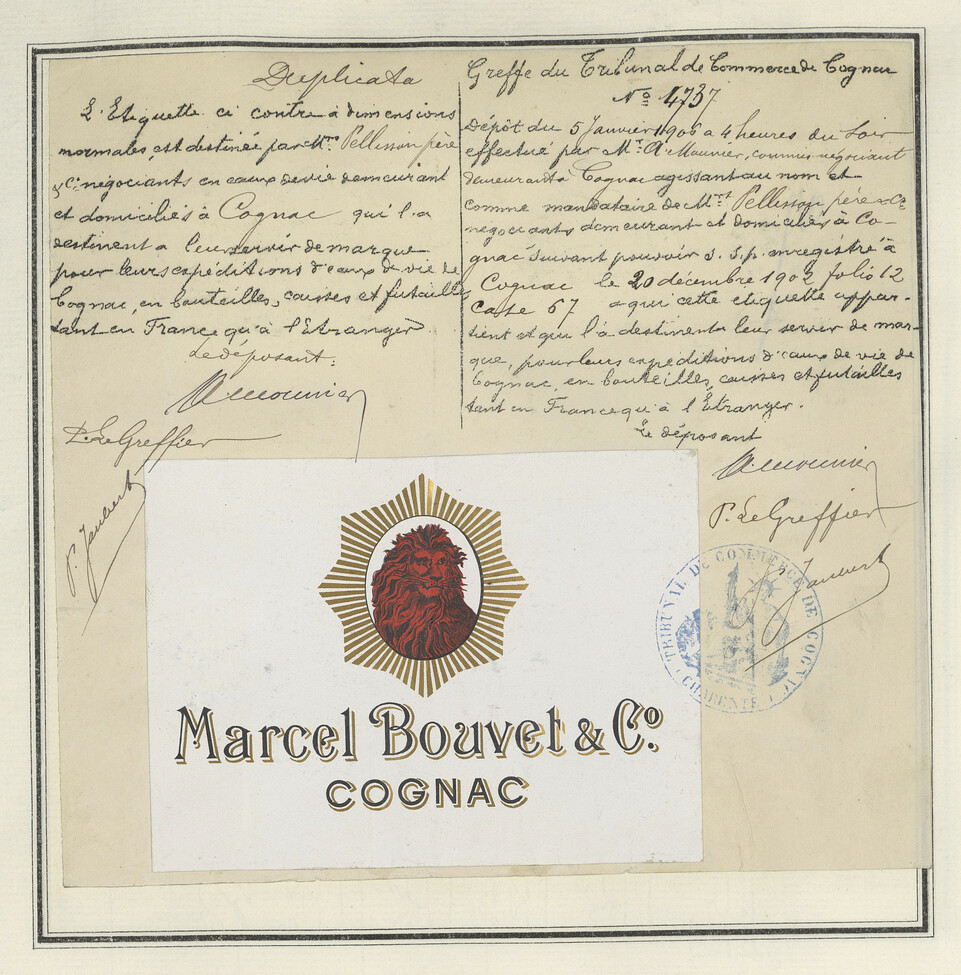 Duplicata
L'Etiquette ci contre à dimensions
normales, est destinée par Mrs Pellisson père
& Cie négociants en eaux de vie demeurant
et domiciliés à Cognac qui l'a
destinent a leur servir de marque
pour leurs expéditions d'eaux de vie de
Cognac, en bouteilles, caisses et futailles
tant en France qu'à l'Etranger
Le déposant:
A. Mounier
P. Le Greffier
P. Jaubert
Greffe du Tribunal de Commerce de Cognac
No 4737
Dépôt du 5 Janvier 1906 a 4 heures du soir
effectué par Mr A. Mounier, commis négociant
demeurant à Cognac agissant au nom et
comme mandataire de Mrs Pellisson père & Cie
négociants demeurant et domiciliés à Co-
gnac suivant pouvoir s. s.p. enregistré à
Cognac le 20 décembre 1902 folio 12
Case 67 a qui cette etiquette appar-
tient et qui l'a destinent a leur servir de mar-
que, pour leurs expéditions d'eaux de vie de
Cognac, en bouteilles, caisses et futailles
tant en France qu'à l'Etranger.
Le déposant
A. Mounier
P. Le Greffier
P. Jaubert
TRIBUNAL DE COMMERCE DE COGNAC
(CHARENTE)
Marcel Bouvet & Co.
COGNAC